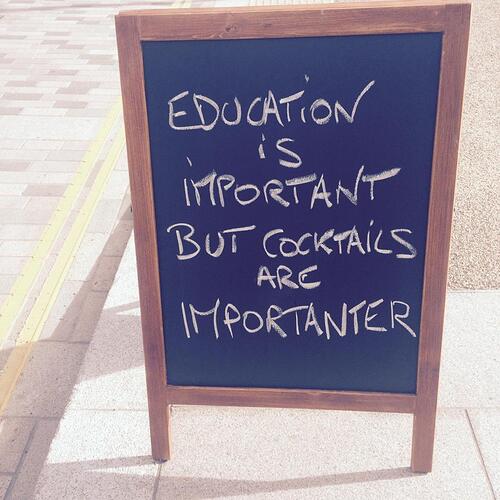 EDUCATION
iS
iMPORTANT
BUT COCKTAiLS
ARE
IMPORTANTER